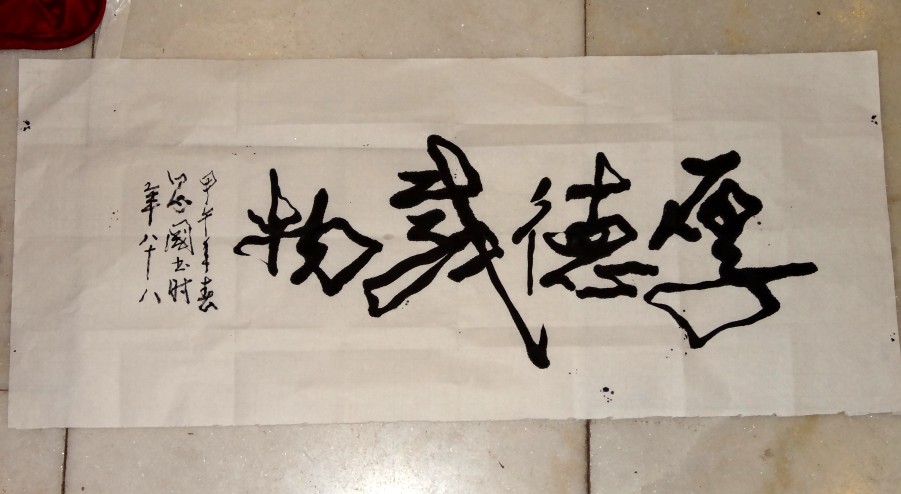 厚德载物
甲午年春
思国书时
年八十八